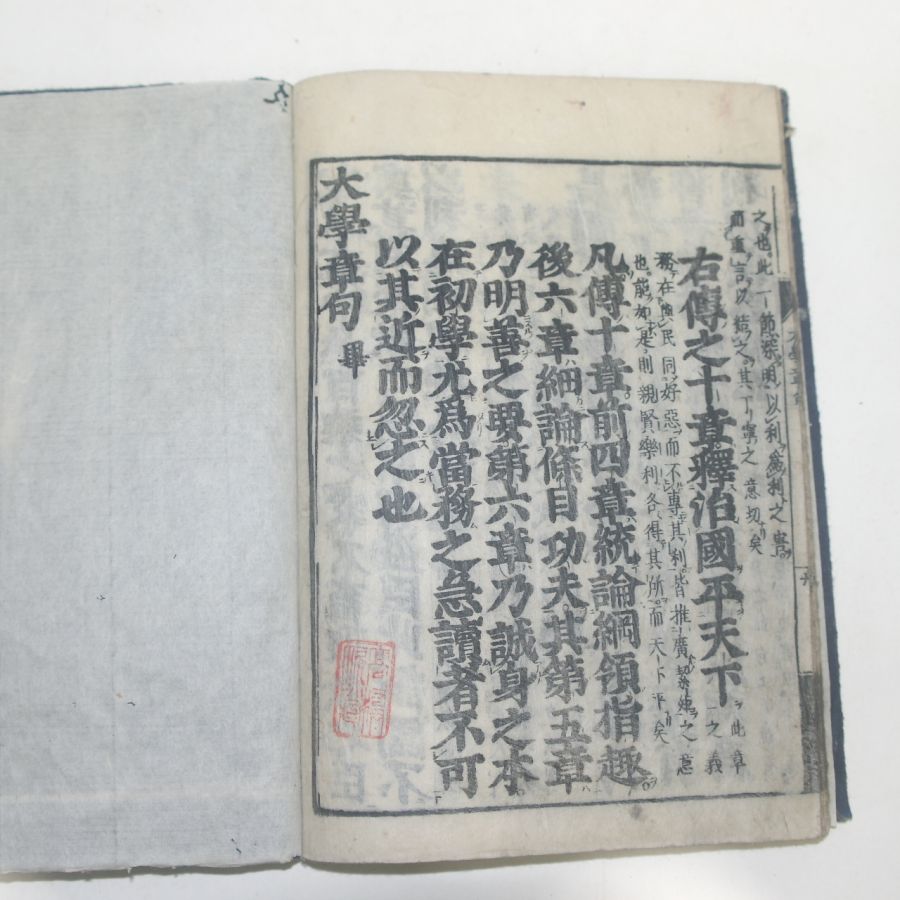 之也此一節深明以利爲利之害
而重言以結之其丁寧之意切矣
右傳之十章釋治國平天下
此章
之義
務在與民同好惡而不專其利皆推廣絜矩之意
也能如是則親賢樂利各得其所而天下平矣
凡傳十章前四章統論綱領指趣
後六章細論條目功夫其第五章
乃明善之要第六章乃誠身之本
在初學尤爲當務之急讀者不可
以其近而忽之也
大學章句 畢